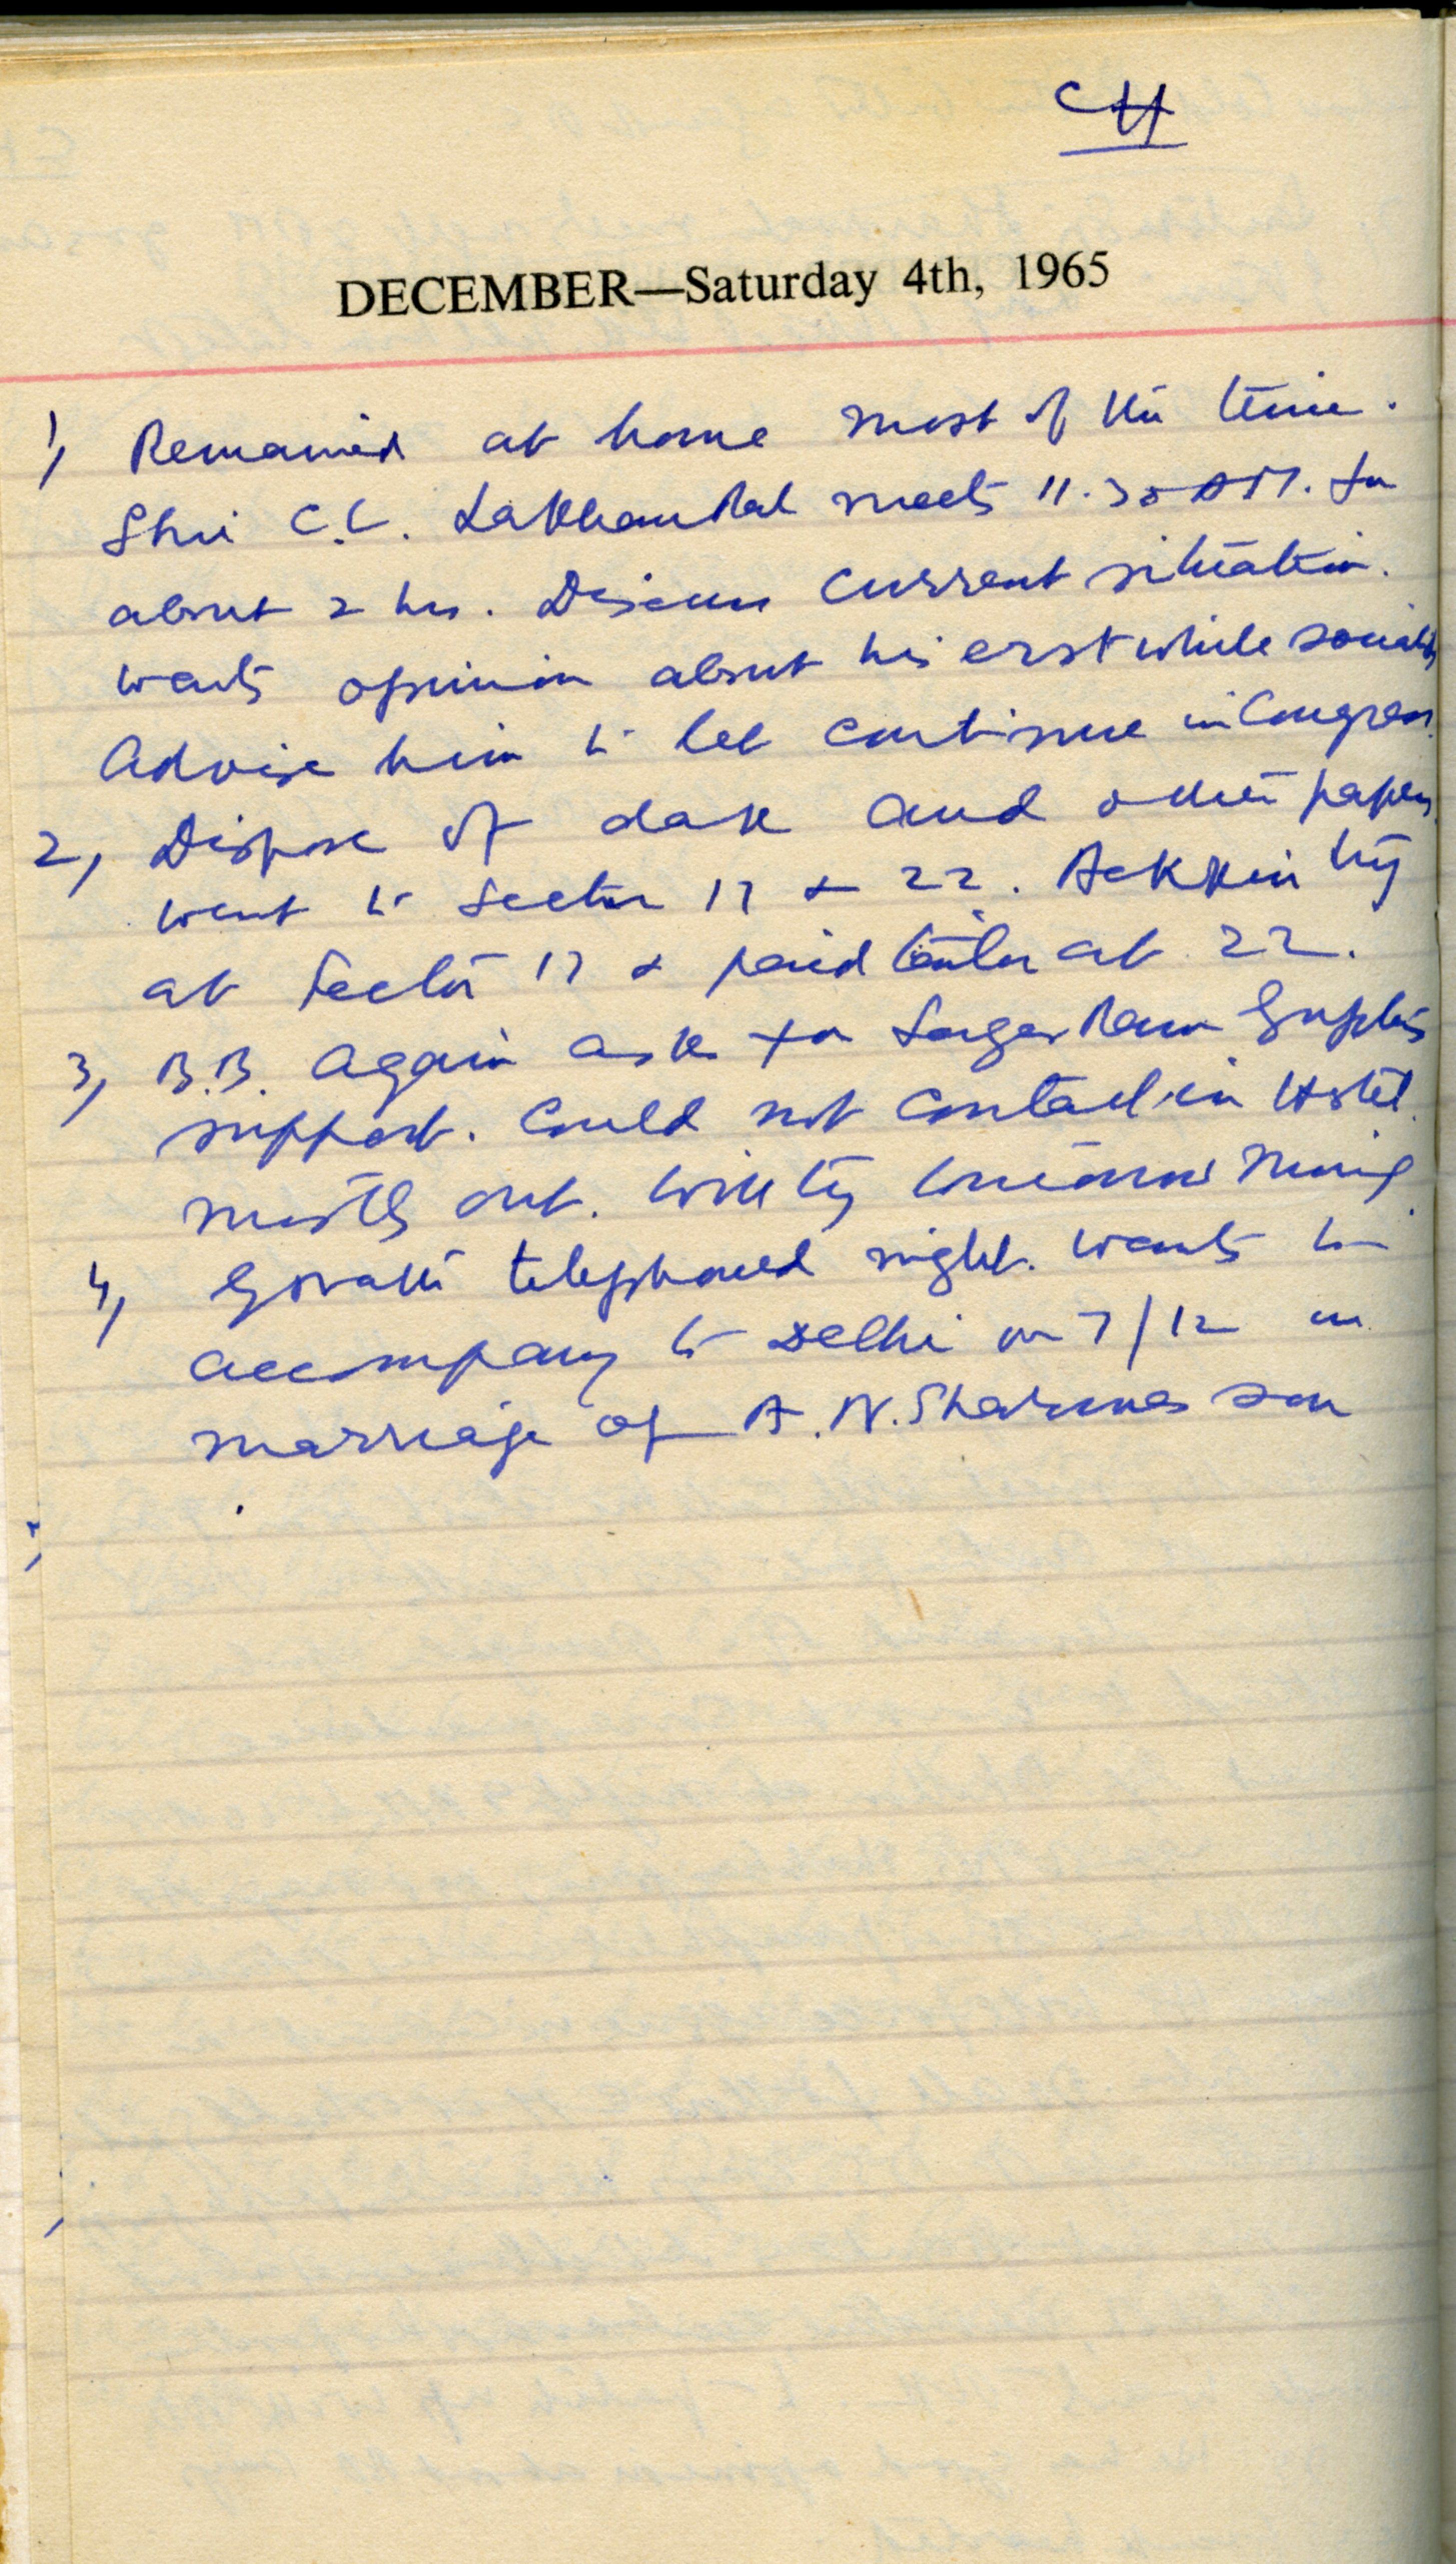 CH
DECEMBER—Saturday 4th, 1965
1, Remained at home most of the time.
Shri C.L. Lakhanpal meets 11.30 AM. for
about 2 hrs. Discuss current situation.
wants opinion about his erstwhile socialists
Advise him to let continue in Congress.
2, Dispose of dak and other papers
went to Sector 17 & 22.
at Sector 17 & paid tailor at 22.
3, B.B. again asks for Sagar Ram Gupta's
support. Could not contact in Hotel.
mostly out. Will try tomorrow
4, telephoned night. wants to
accompany to Delhi on 7/12 on
marriage of A.N. Sharmas son